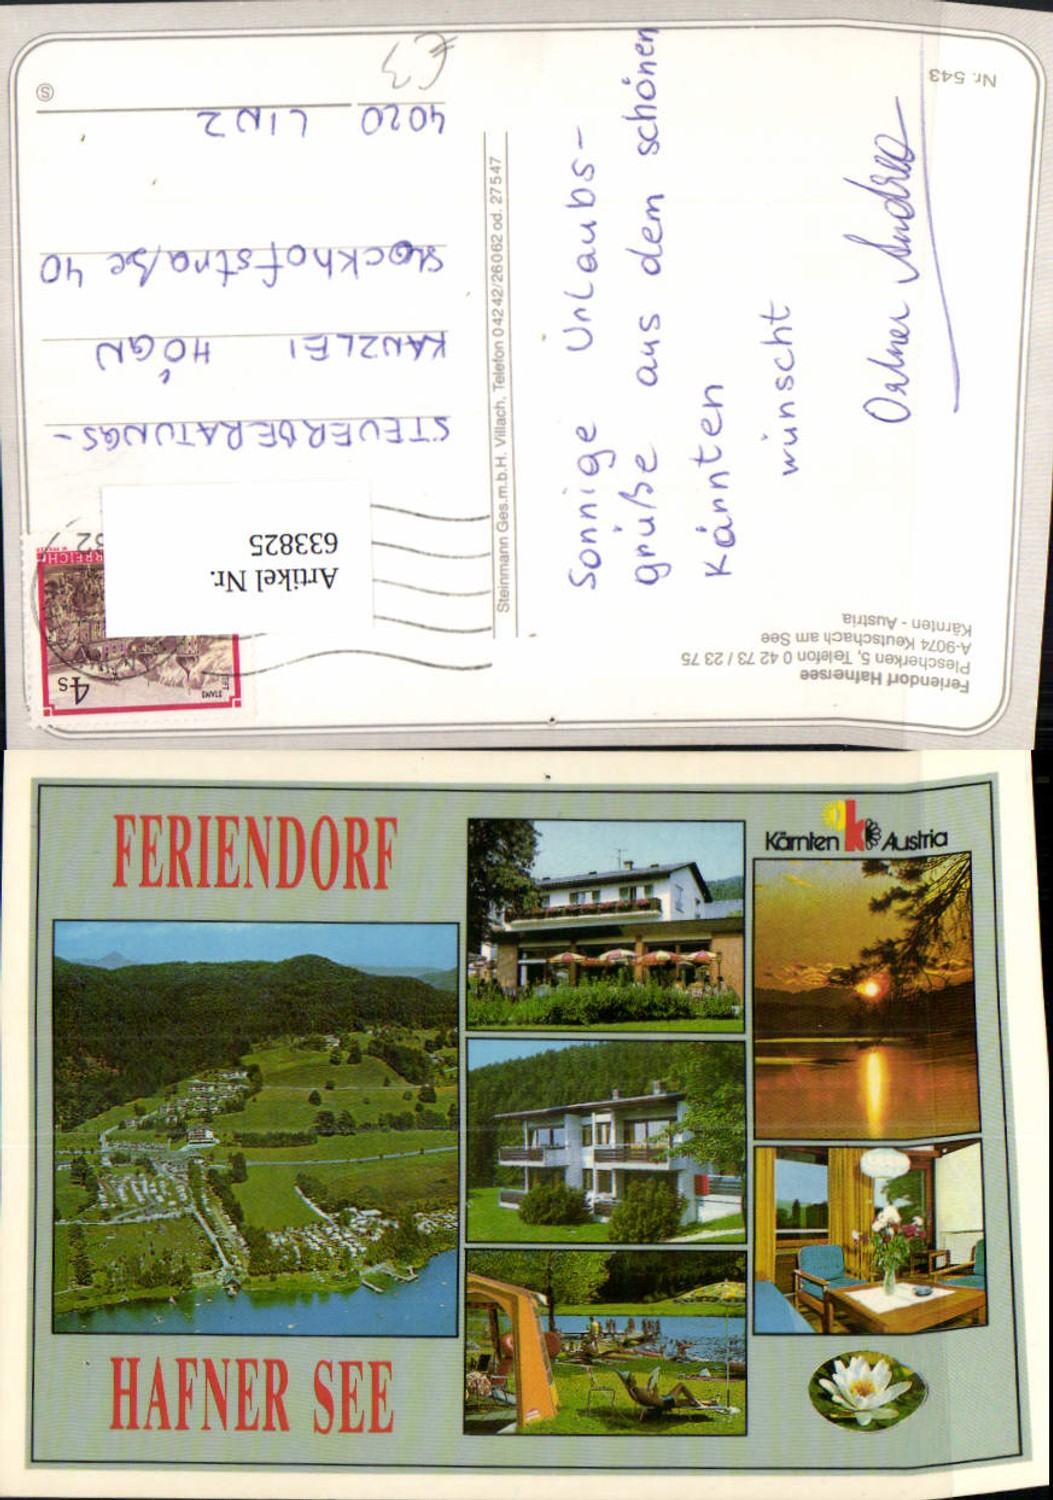 Nr. 543
€3
Sonnige Urlaubs-
grüße aus dem schönen
Kärnten
wünscht
Ortner Andrea
Ferriendorf Hafnersee
Plescherken 5, Telefon 0 42 73 / 23 75
A-9074 Keutschach am See
Kärnten - Austria
Steinmann Ges.m.b.H. Villach, Telefon 04242/26062 od. 27547
4s
STIFT
STAMS
Artikel Nr.
633825
STEUERBERATUNGS-
KANZLEI HÖGN
Stockhofstraße 40
4020 LINZ
S
FERIENDORF
Kärnten k Austria
HAFNER SEE